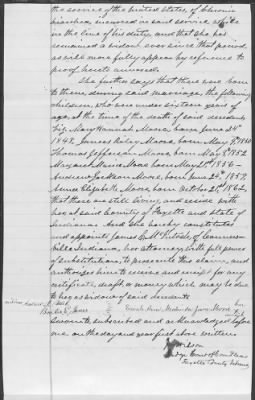 the service of the United States, of Chronic
diarrhea, incurred in said service
in the line of his duty, and that she has
remained a widow ever since that period,
as will more fully appear by reference to
proof hereto annexed.
She further says that there were born
to them, during said marriage, the following
children, who were under sixteen years of
age, at the time of the death of said decedent
Mary Hannah Moore, born June 24th
1848, James Moore, born May 9th 1850
Thomas Jefferson Moore, born May 1852
Margaret Moore, born May 1856
Andrew Jackson Moore, born June 24th 1859
Elizabeth Moore, born October 21st 1862,
that there are still living, and reside with
her at said County of Fayette and State of
Indiana. And she hereby constitutes
and appoints of Conners-
ville Indiana, her attorney, with full power
of substitution, to prosecute this claim, and
authorizes him to receive and receipt for any
certificate, draft, or money which may be due
to her as widow of said decedent
Moore
Sworn to, subscribed and acknowledged before
me on the day and year first above written